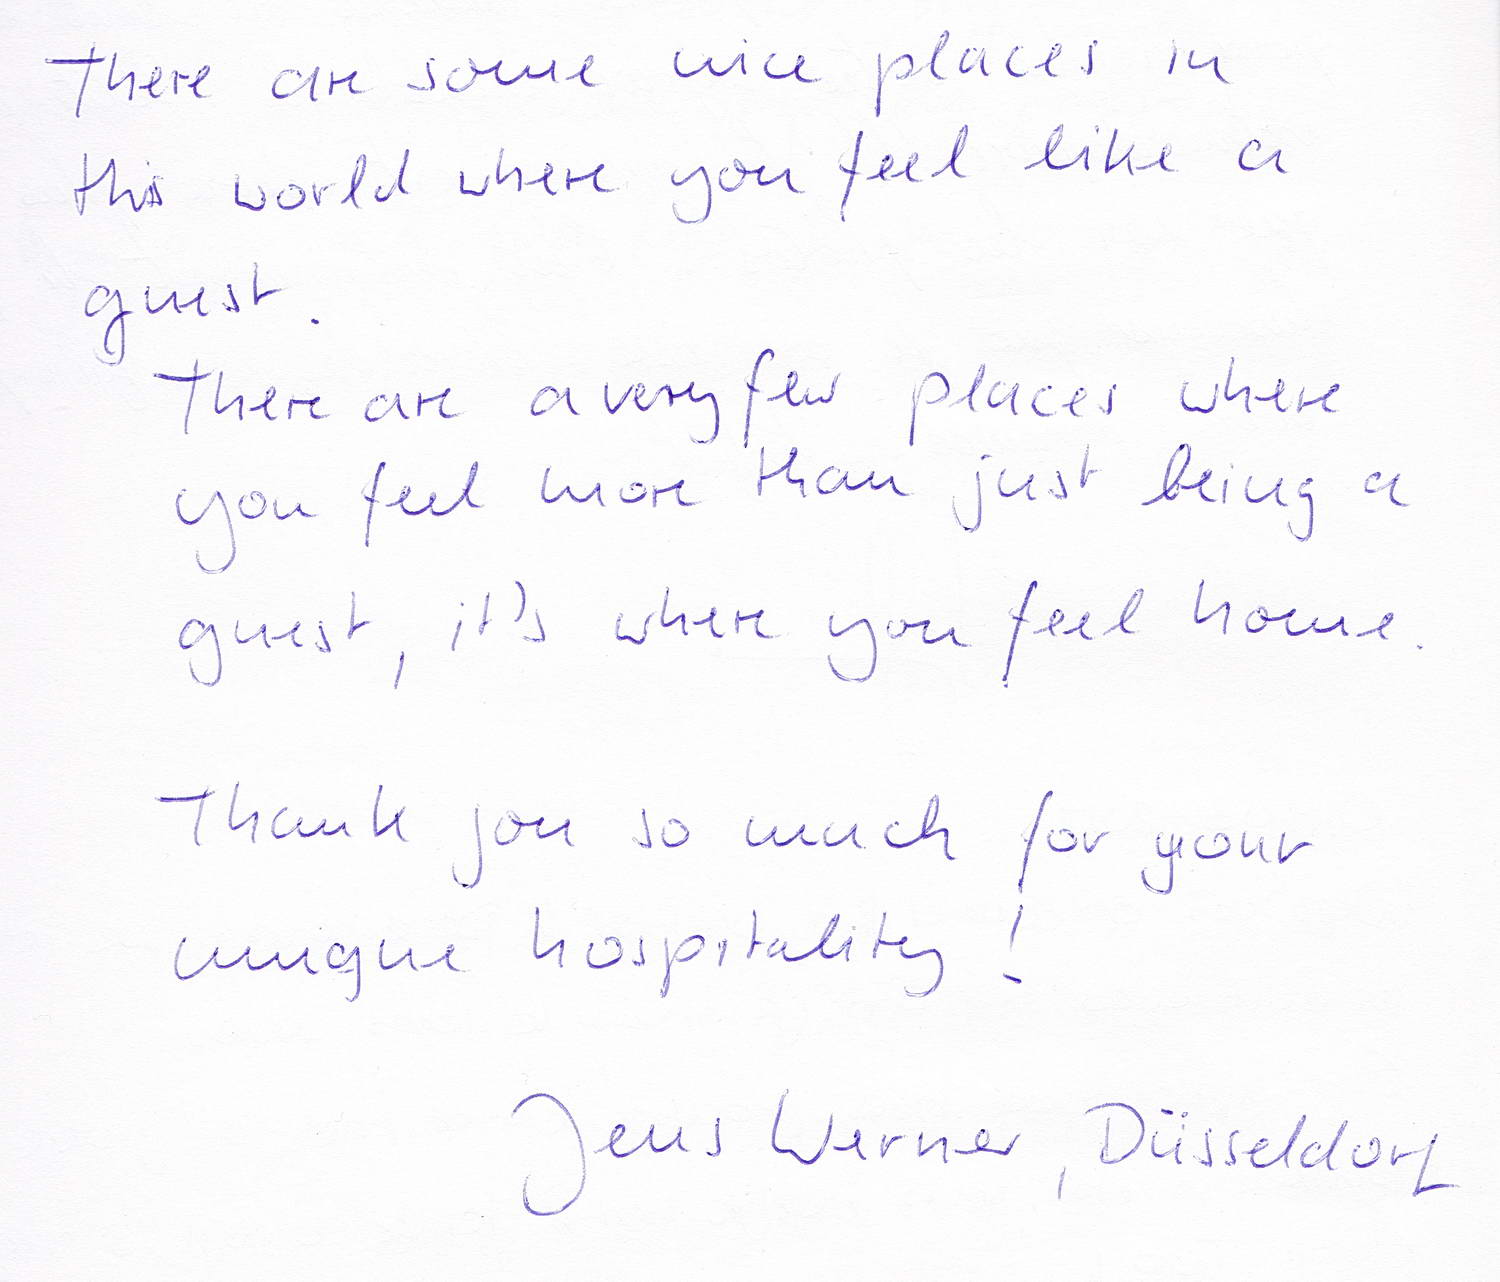 There are some nice places in
this world where you feel like a
guest.
There are a very few places where
you feel more than just being a
guest, it's where you feel home.
Thank you so much for your
unique hospitality!
Jens Werner, Düsseldorf